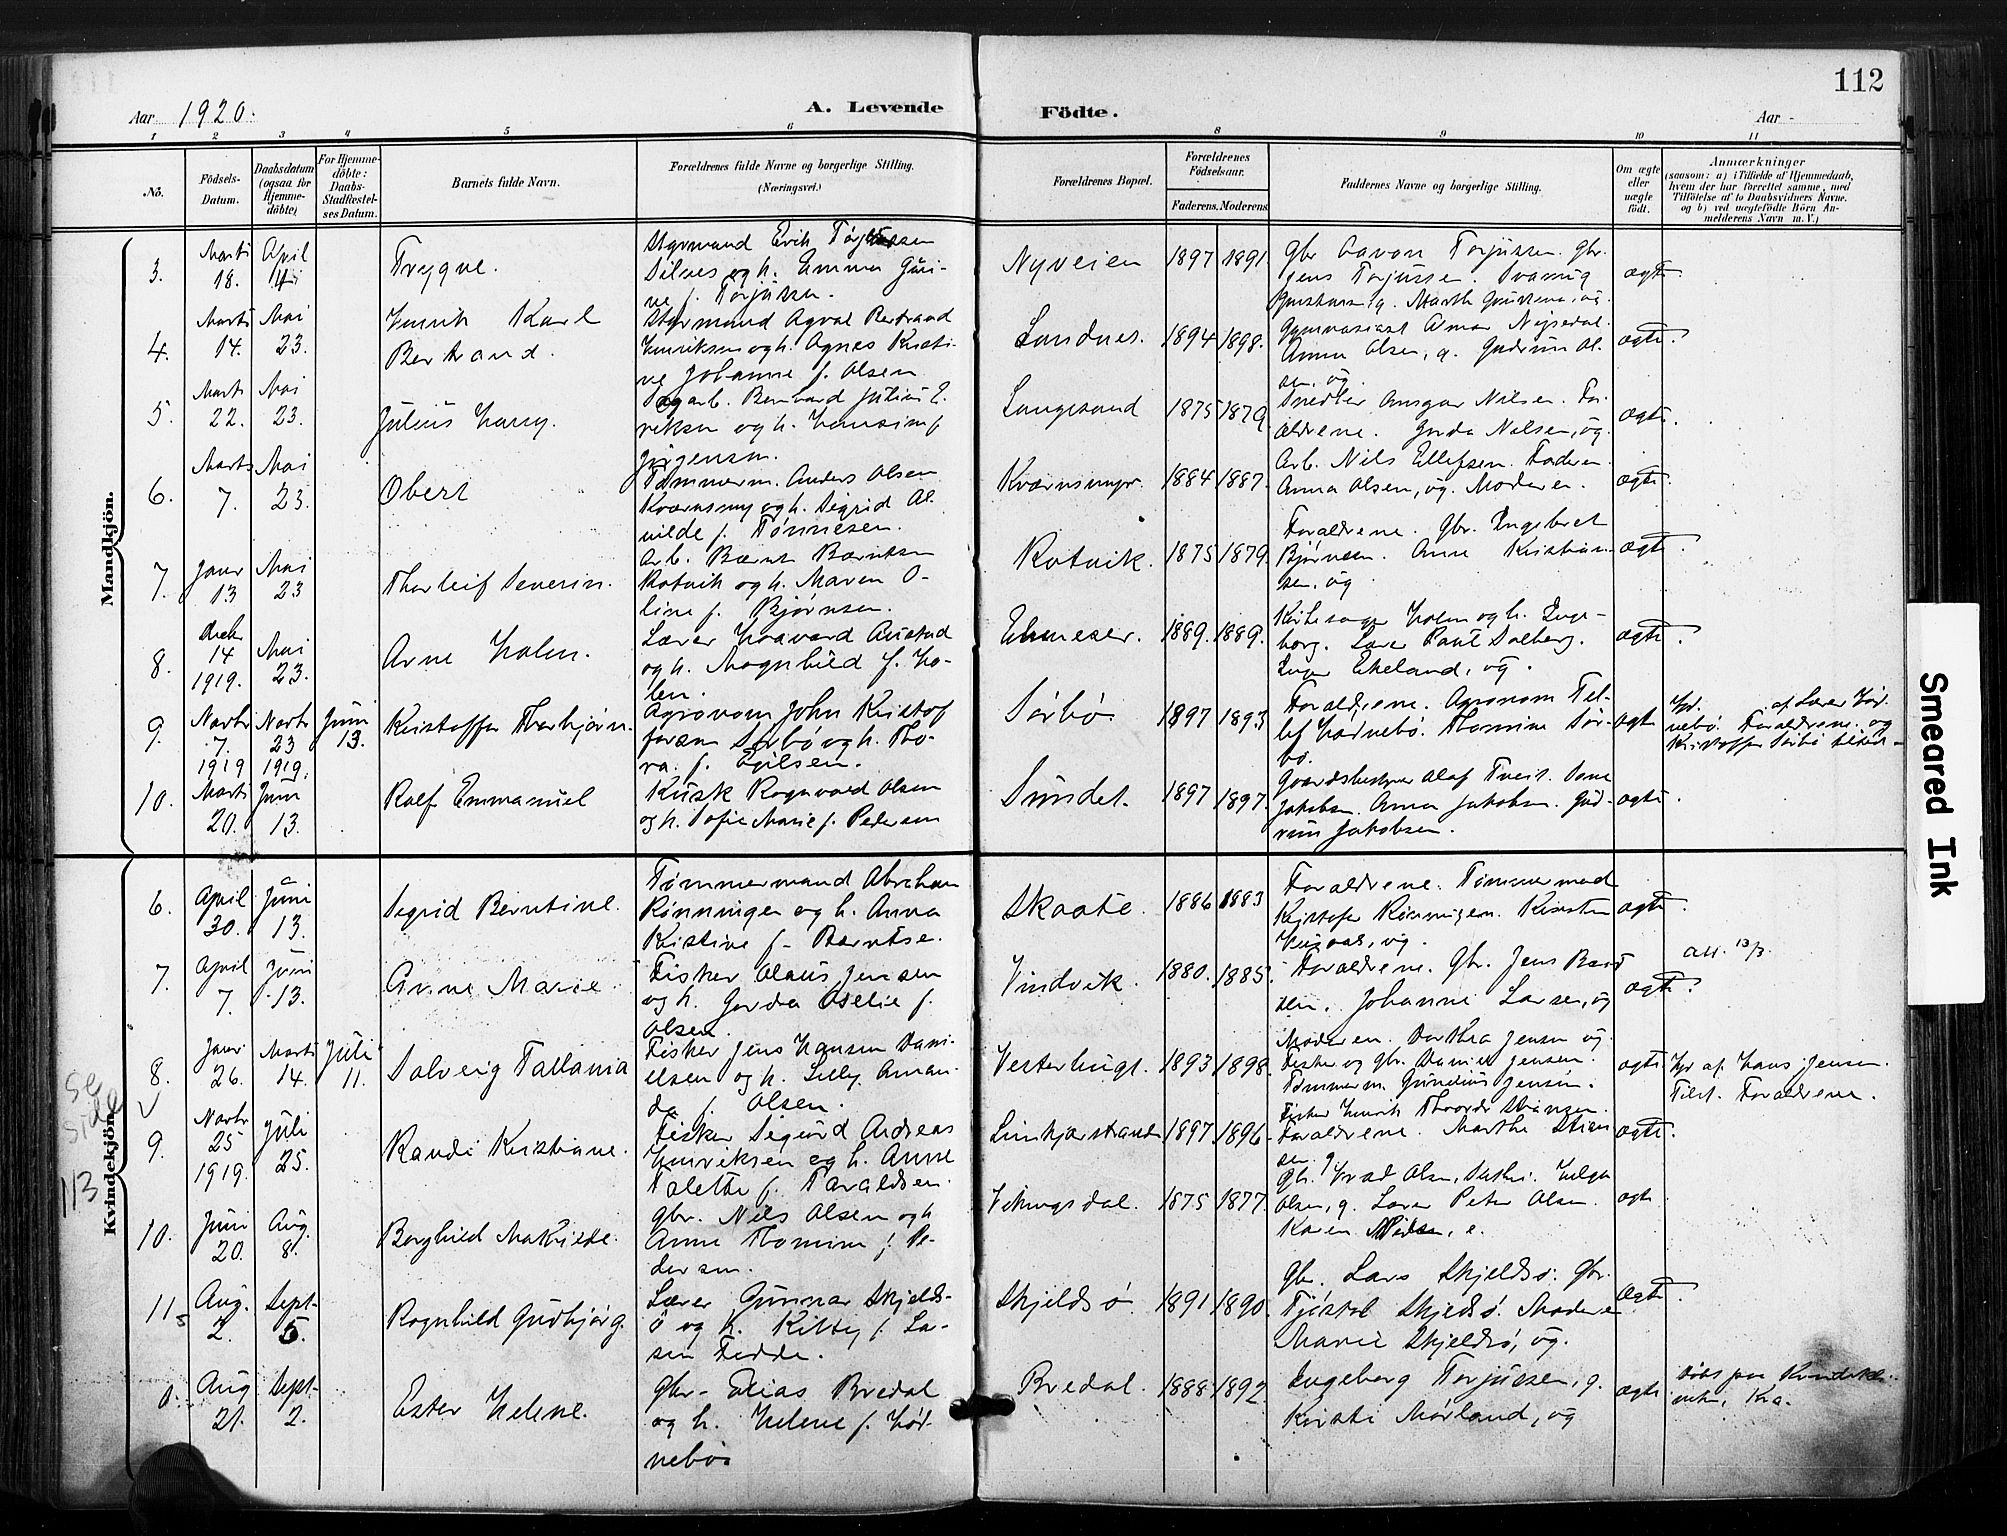 112
Aar 1920.
A. Levende Födte.
Aar
1 2 3 4 5 6 8 9 10 11
No.
Födsels-Datum.
Daabsdatum (ogsaa for Hjemmedöbte)
For Hjemmedöbte: Daabs-Stadfæstelses Datum.
Barnets fulde Navn.
Forældrenes fulde Navne og borgerlige Stilling.
(Næringsvei.)
Forældrenes Bopæl.
Forældrenes Födselsaar.
Faderens. Moderens.
Faddernes Navne og borgerlige Stilling.
Om ægte eller uægte födt.
Anmærkninger
(saasom: a) i Tilfælde af Hjemmedaab, hvem der har forrettet samme, med Tilföielse af to Daabsvidners Navne, og b) ved uægtefödte Börn Anmelderens Navn m. V.)
Mandkjön.
3. Marts 18. April
Trygve.
Styrmand Erik Torjussen
og h. Emma
f. Torjussen.
Nyveien 1897 1891
Gbr Torjussen. Gbr.
Jens Torjussen.
ægte
4. Marts 14. Mai 23.
Henrik Karl
Bertrand.
Styrmand Agval Bertrand
Henriksen og h. Agnes Kristi-
ne Johanne f. Olsen
Sandnes. 1894 1898.
Gymnasiast
Anna Olsen, g. Gudrun Ol-
sen, ug.
ægte.
5. Marts 22. Mai 23.
Julius Harry.
Bernhard Julius E-
riksen og h. Hansine f.
Jörgensen.
Langesand 1875 1879.
Snedker Ansgar Nilsen. For-
ældrene. Gerda Nilsen, ug.
ægte.
6. Marts 7. Mai 23.
Obert
Tömmerm. Anders Olsen
Kværnsmyr og h. Sigrid Al-
vilde f. Tönnesen.
Kværnsmyr. 1884 1887.
Arb. Nils Ellefsen. Faderen.
Anna Olsen, ug. Moderen.
ægte
7. Januar 13 Mai 23
Thorleif Severin.
Arb. Bærnt Bærntsen
Rotvik og h. Maren O-
line f. Bjørnsen.
Rotvik. 1875 1879.
Forældrene. Gbr. Engebret
Bjørnsen. Anne Kristian-
sen, ug
ægte.
8. Decbr 14 1919. Mai 23.
Arne Holm.
Lærer Haavard Austad
og h. Magnhild f. Ho-
len.
Ebeneser. 1889. 1889.
Kirkesanger Holm og h. Inge-
borg. Lærer Paul Solberg.
Inga Ekeland, ug.
ægte.
9. Novbr 7. 1919 Novbr 23 1919. Juni 13.
Kristoffer Thorbjørn.
Agronom John Kristof
fersen Sørbø og h. Tho-
ra. f. Egilsen.
Sørbø. 1897 1893
Forældrene. Agronom Tel-
lef Hødnebø. Thomine Sør-
bø.
ægte
af Lærer Hød-
nebø. Forældrene og
Kristoffer Sørbø
10. Marts 20. Juni 13.
Rolf Emmanuel
Kusk Ragnvald Olsen
og h. Sofie Marie f. Pedersen
Sundet. 1897 1897.
Gaardsbestyrer Olaf Tveit.
Jakobsen. Anna Jakobsen. Gud-
run Jakobsen.
ægte.
Kvindekjön.
6. April 30. Juni 13.
Sigrid Berntine.
Tømmermand Abraham
Rønningen og h. Anna
Kristine f. Berntse.
Skaate. 1886 1883
Forældrene. Tømmermand
Kristofer Rønningen. Kirsten
ug.
ægte.
7. April 7. Juni 13.
Anne Marie
Fisker Olaus Jensen
og h. Gerda Oselie f.
Olsen.
Vindvik. 1880. 1885.
Forældrene. Gbr. Jens
Johanne Larsen, ug
ægte.
att. 13/3
8. Januar 26. Marts 14. Juli 11.
Solveig Tallania
Fisker Jens Hansen Dani-
elsen og h. Lilly Aman-
da f. Olsen.
Vesterbugt. 1893 1898.
Moderen. Dorthea Jensen ug
Fisker og gbr. Daniel Jensen.
Tømmerm. Gunelius Jensen.
Fisker Henrik
ægte
Hjd af Hans Jensen.
Tilst. Forældrene.
se side 113
9. Novbr 25 1919. Juli 25.
Randi Kristiane.
Fisker Sigurd Andreas
Henriksen og h. Anne
Valette f. Taraldsen.
1897 1896
Forældrene. Marthe
ægte.
10. Juni 20. Aug. 8.
Borghild Matilde.
Gbr. Nils Olsen og h
Anne Thomine f. Pe-
dersen.
Vikingsdal. 1875 1877.
Gbr. Olsen, Helga
Olsen, g. Lærer Peter Olsen.
Karen Nilsen, e.
ægte
11 Aug. 2. Sept. 5.
Ragnhild Gudbjørg.
Lærer Gunnar Skjelds-
ø og h. Kitty f. La-
sen Fedde.
Skjeldsø 1891 1890.
Gbr. Lars Skjeldsø. Gbr.
Tjøstol Skjeldsø. Moderen
Marie Skjeldsø, ug.
ægte.
Aug 21. Sept. 2.
Ester Helene.
Gbr. Elias Bredal
og h. Helene f. Hød-
nebø.
Bredal. 1888 1892.
Ingeborg Torjussen, g.
Kirsti Mørland, ug
ægte
Døbt paa Kvindekli-
niken, Kra.
Smeared Ink